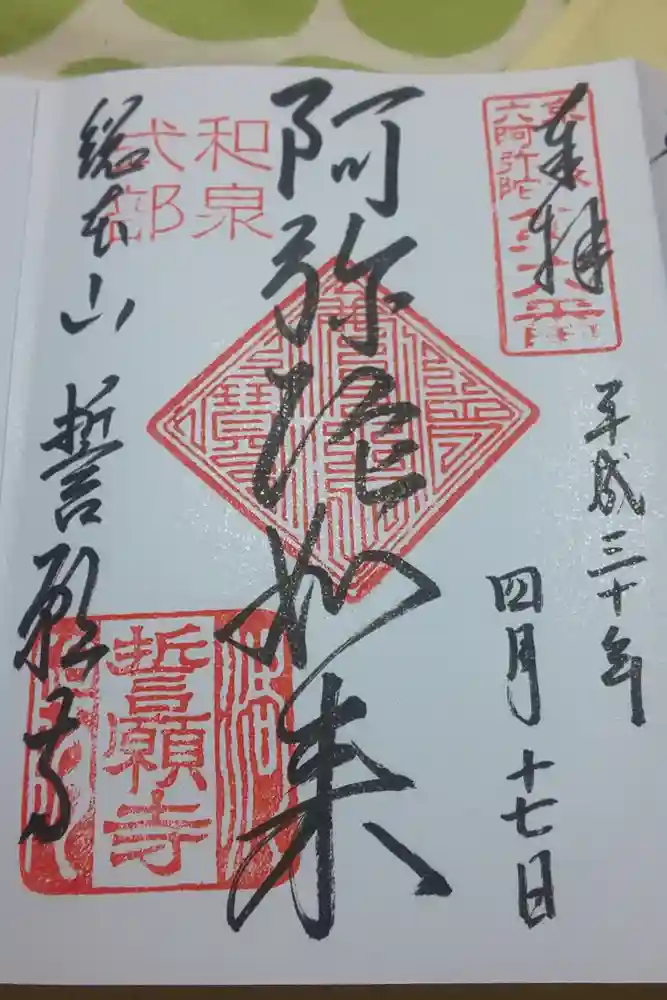 奉拝
六阿弥陀
平成三十年
四月十七日
阿弥陀如来
和泉
式部
総本山 誓願寺
誓願寺